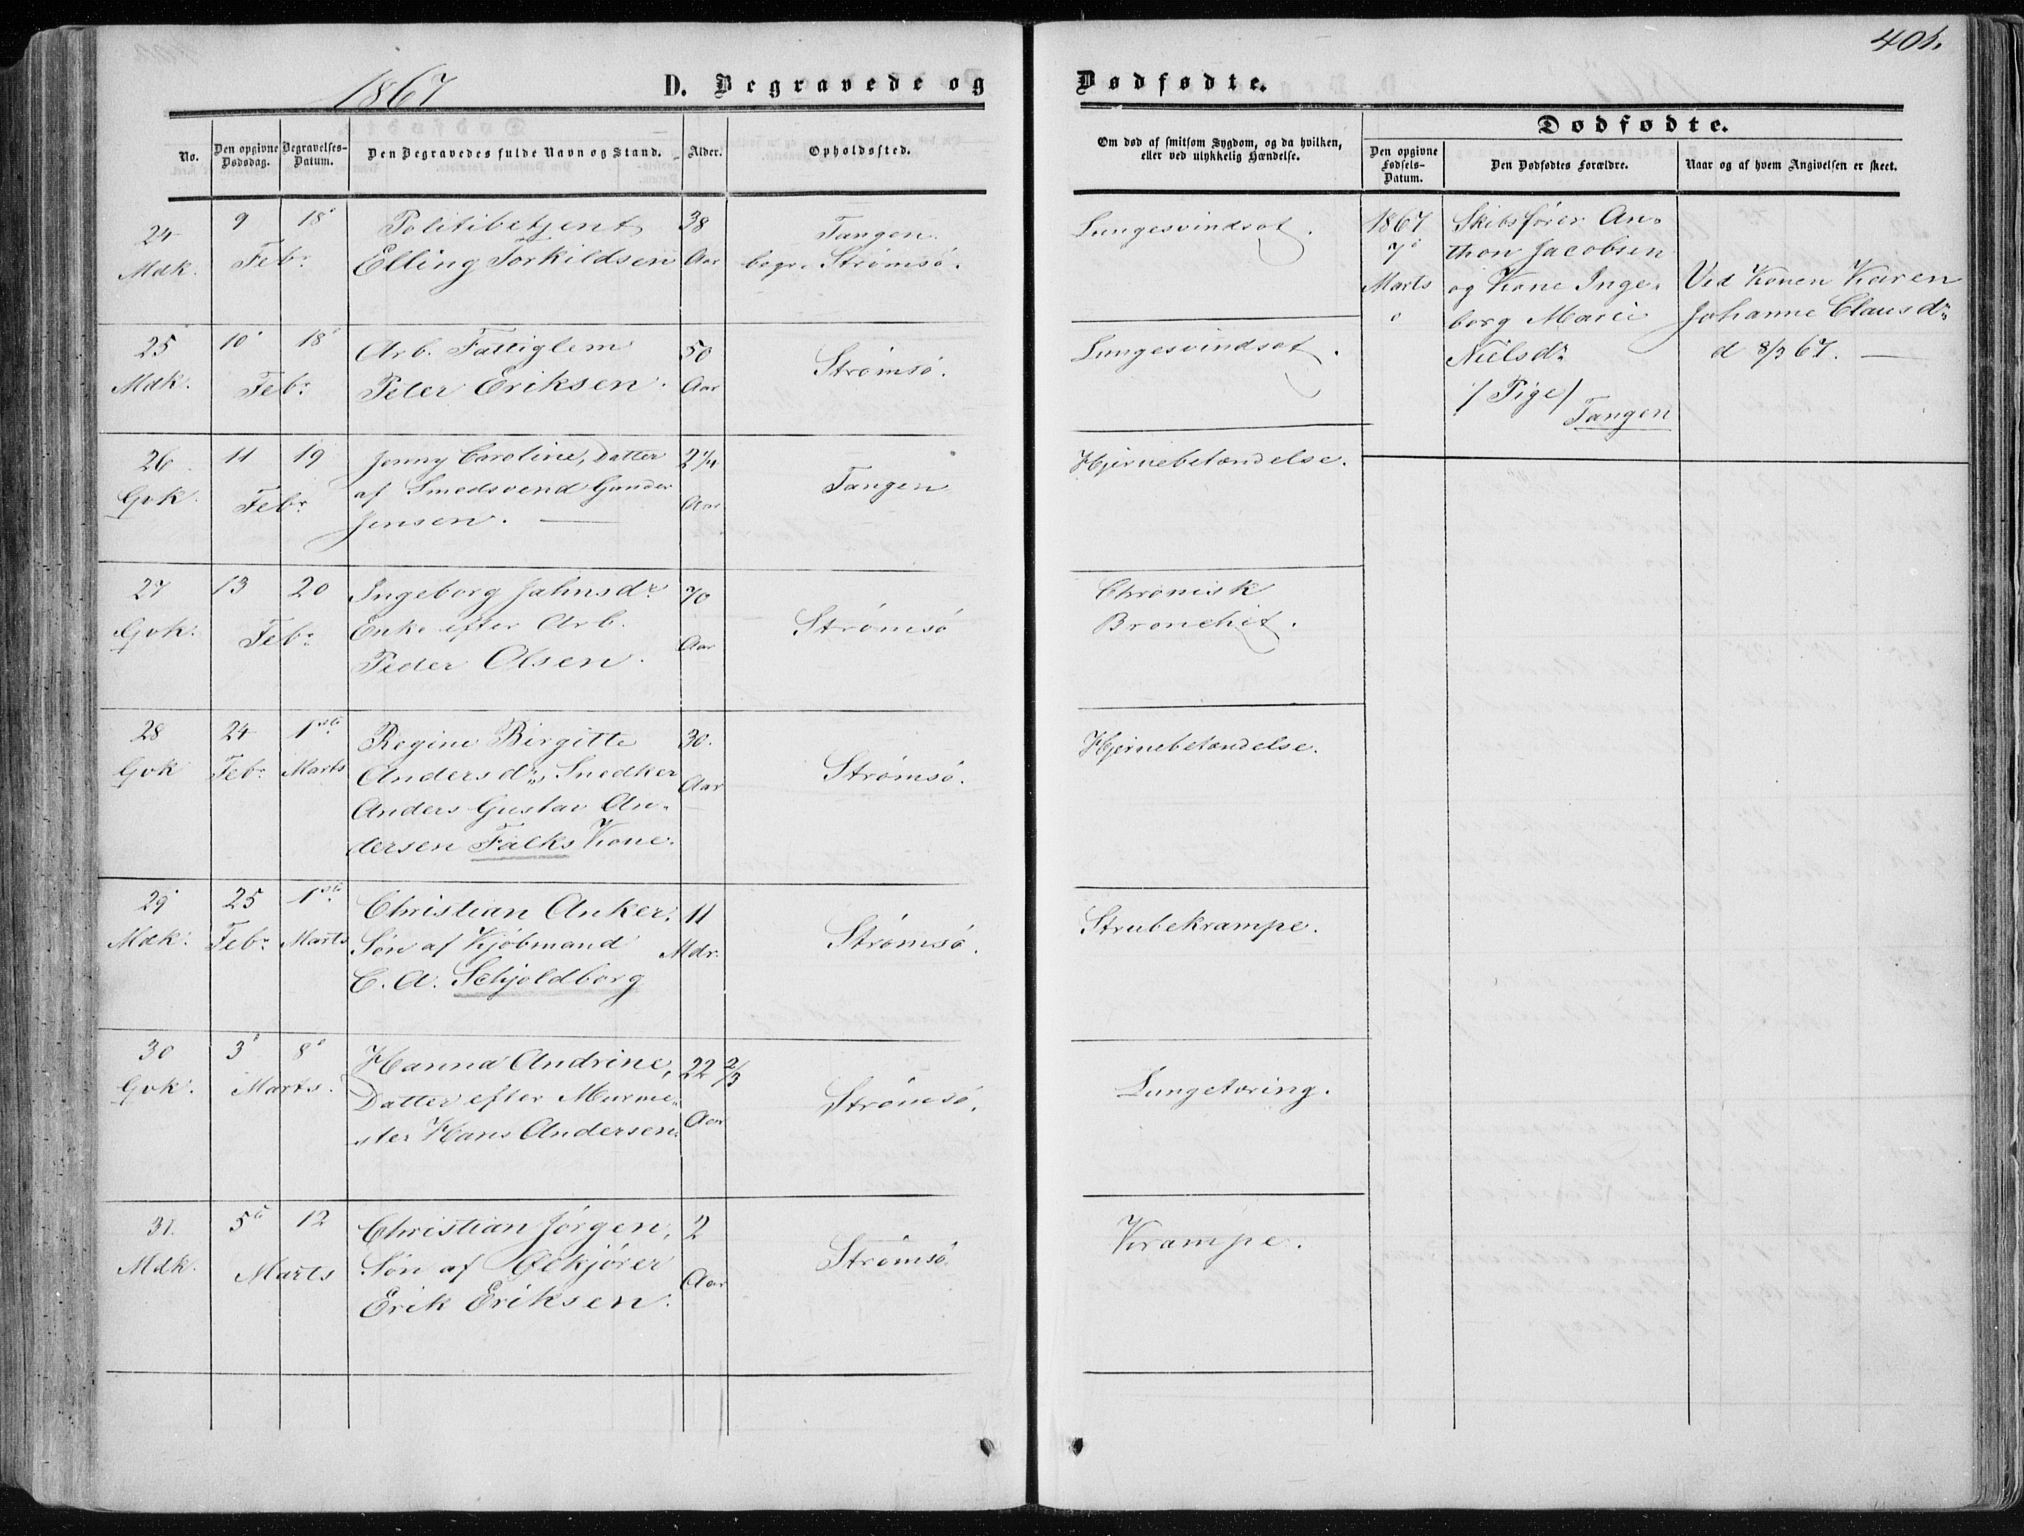 401.
1867
D. Begravede og
Dødfødte.
No.
Den opgivne Dødsdag.
Begravelses-Datum.
Den Begravedes fulde Navn og Stand.
Alder.
Opholdssted.
Om død af smitsom Sygdom, og da hvilken, eller ved ulykkelig Hændelse.
Dødfødte.
Den opgivne Fødsels-Datum.
Den Dødfødtes Forældre.
Naar og af hvem Angivelsen er skeet.
24 9 18 Politibetjent 38 Tangen
Mdk. Febr. Elling Torkildsen Aar begr. Strømsø.
Lungesvindsot.
25 10 18 Arb. Fattiglem 50 Strømsø.
Mdk. Febr. Peter Eriksen. Aar
Lungesvindsot.
26 11 19 Jenny Caroline, Datter 2 1/4
Gvk. Febr. af Smedsvend Gunder Aar Tangen
Jensen. —
Hjernebetændelse.
27 13 20 Ingeborg Jahnsdr. 70
Gvk. Febr. Enke efter Arb. Aar Strømsø
Peder Olsen.
Chronisk
Bronchit.
28 24 1ste Regine Birgitte 30.
Gvk Febr. Marts Andersdr., Snedker Aar Strømsø.
Anders Gustav An-
dersen Falks Kone.
Hjernebetændelse.
29 25 1ste Christian Anker, 11
Mdk. Febr. Marts Søn af Kjøbmand Mdr. Strømsø.
C. A. Schjoldborg
Strubekrampe.
30 3 8 Hanna Andrine, 22 2/3
Gvk. Marts. Datter efter Murme- Aar Strømsø.
ster Hans Andersen.
Lungetæring.
31. 5 12 Christian Jørgen, 2
Mdk. Marts Søn af Øekjører Aar Strømsø
Erik Eriksen.
Krampe.
1867 Skibsfører An-
7 thon Jacobsen
Marts og Kone Inge- Ved Konen Karen
borg Marie Johanne Clausdr.
Nielsdr. d 8/3 67. —
/ Pige /
Tangen